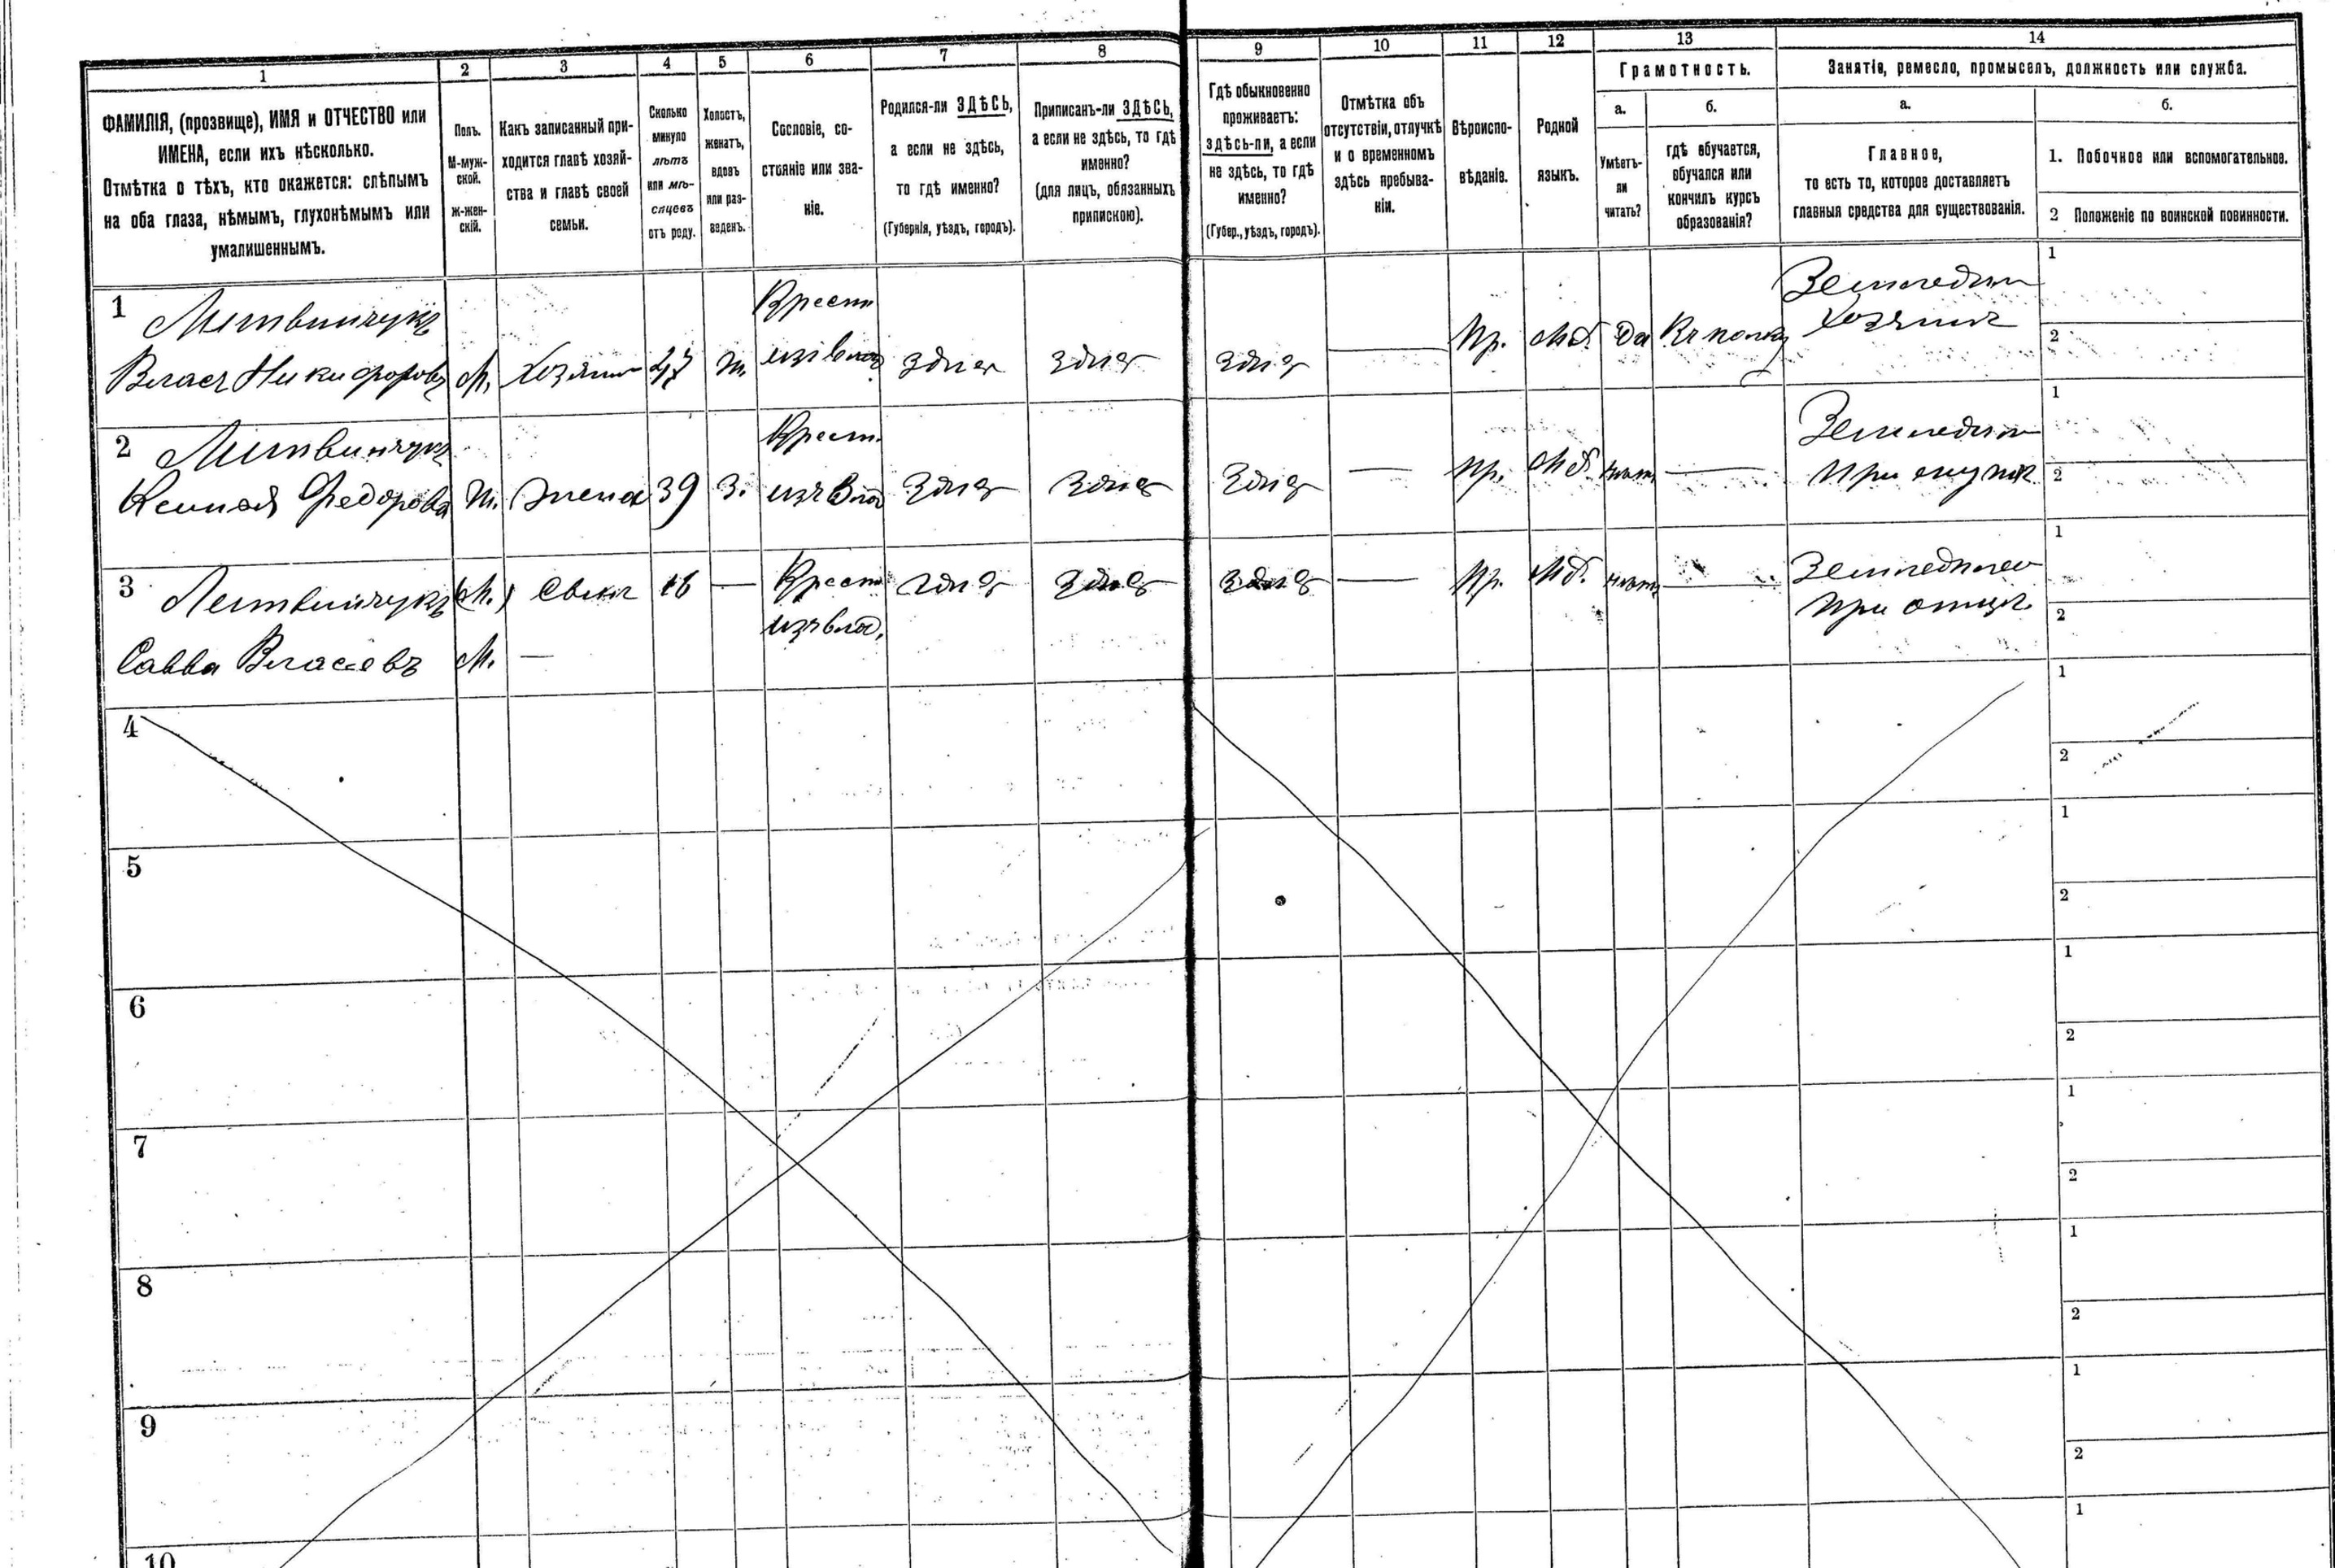 1 2 3 4 5 6 7 8 9 10 11 12 13 14
ФАМИЛІЯ, (прозвище), ИМЯ и ОТЧЕСТВО или
ИМЕНА, если ихъ нѣсколько.
Отмѣтка о тѣхъ, кто окажется: слѣпымъ
на оба глаза, нѣмымъ, глухонѣмымъ или
умалишеннымъ.
Полъ.
М-муж-
ской.
ж-жен-
скій.
Какъ записанный при-
ходится главѣ хозяй-
ства и главѣ своей
семьи.
Сколько
минуло
лѣтъ
или мѣ-
сяцевъ
отъ роду.
Холостъ,
женатъ,
вдовъ
или раз-
веденъ.
Сословіе, со-
стояніе или зва-
ніе.
Родился-ли ЗДѢСЬ,
а если не здѣсь,
то гдѣ именно?
(Губернія, уѣздъ, городъ).
Приписанъ-ли ЗДѢСЬ,
а если не здѣсь, то гдѣ
именно?
(для лицъ, обязанныхъ
припискою).
Гдѣ обыкновенно
проживаетъ:
здѣсь-ли, а если
не здѣсь, то гдѣ
именно?
(Губер., уѣздъ, городъ).
Отмѣтка объ
отсутствіи, отлучкѣ
и о временномъ
здѣсь пребыва-
ніи.
Вѣроиспо-
вѣданіе.
Родной
языкъ.
Грамотность.
а.
Умѣетъ-
ли
читать?
б.
гдѣ обучается,
обучался или
кончилъ курсъ
образованія?
Занятіе, ремесло, промыселъ, должность или служба.
а.
Главное,
то есть то, которое доставляетъ
главныя средства для существованія.
б.
1. Побочное или вспомогательное.
2 Положеніе по воинской повинности.
1 Литвинчукъ Крест Земледѣл 1
Власъ Никифоровъ М. Хозяинъ 47 ж. изъ влад здѣсь здѣсь здѣсь — Пр. Мл. Да Хозяинъ 2
2 Литвинчукъ Крест. Земледѣл 1
Федорова Ж. Жена 39 З. изъ влад здѣсь здѣсь здѣсь — Пр. Мл. нѣтъ — При мужѣ 2
3 Литвинчукъ (М.) Сынъ 16 — Крест здѣсь здѣсь здѣсь — Пр. Мл. нѣтъ — Земледѣлец 1
изъ влад. при отцѣ. 2
Савва Власовъ М. —
4 1
2
5 1
2
6 1
2
7 1
2
8 1
2
9 1
2
10 1